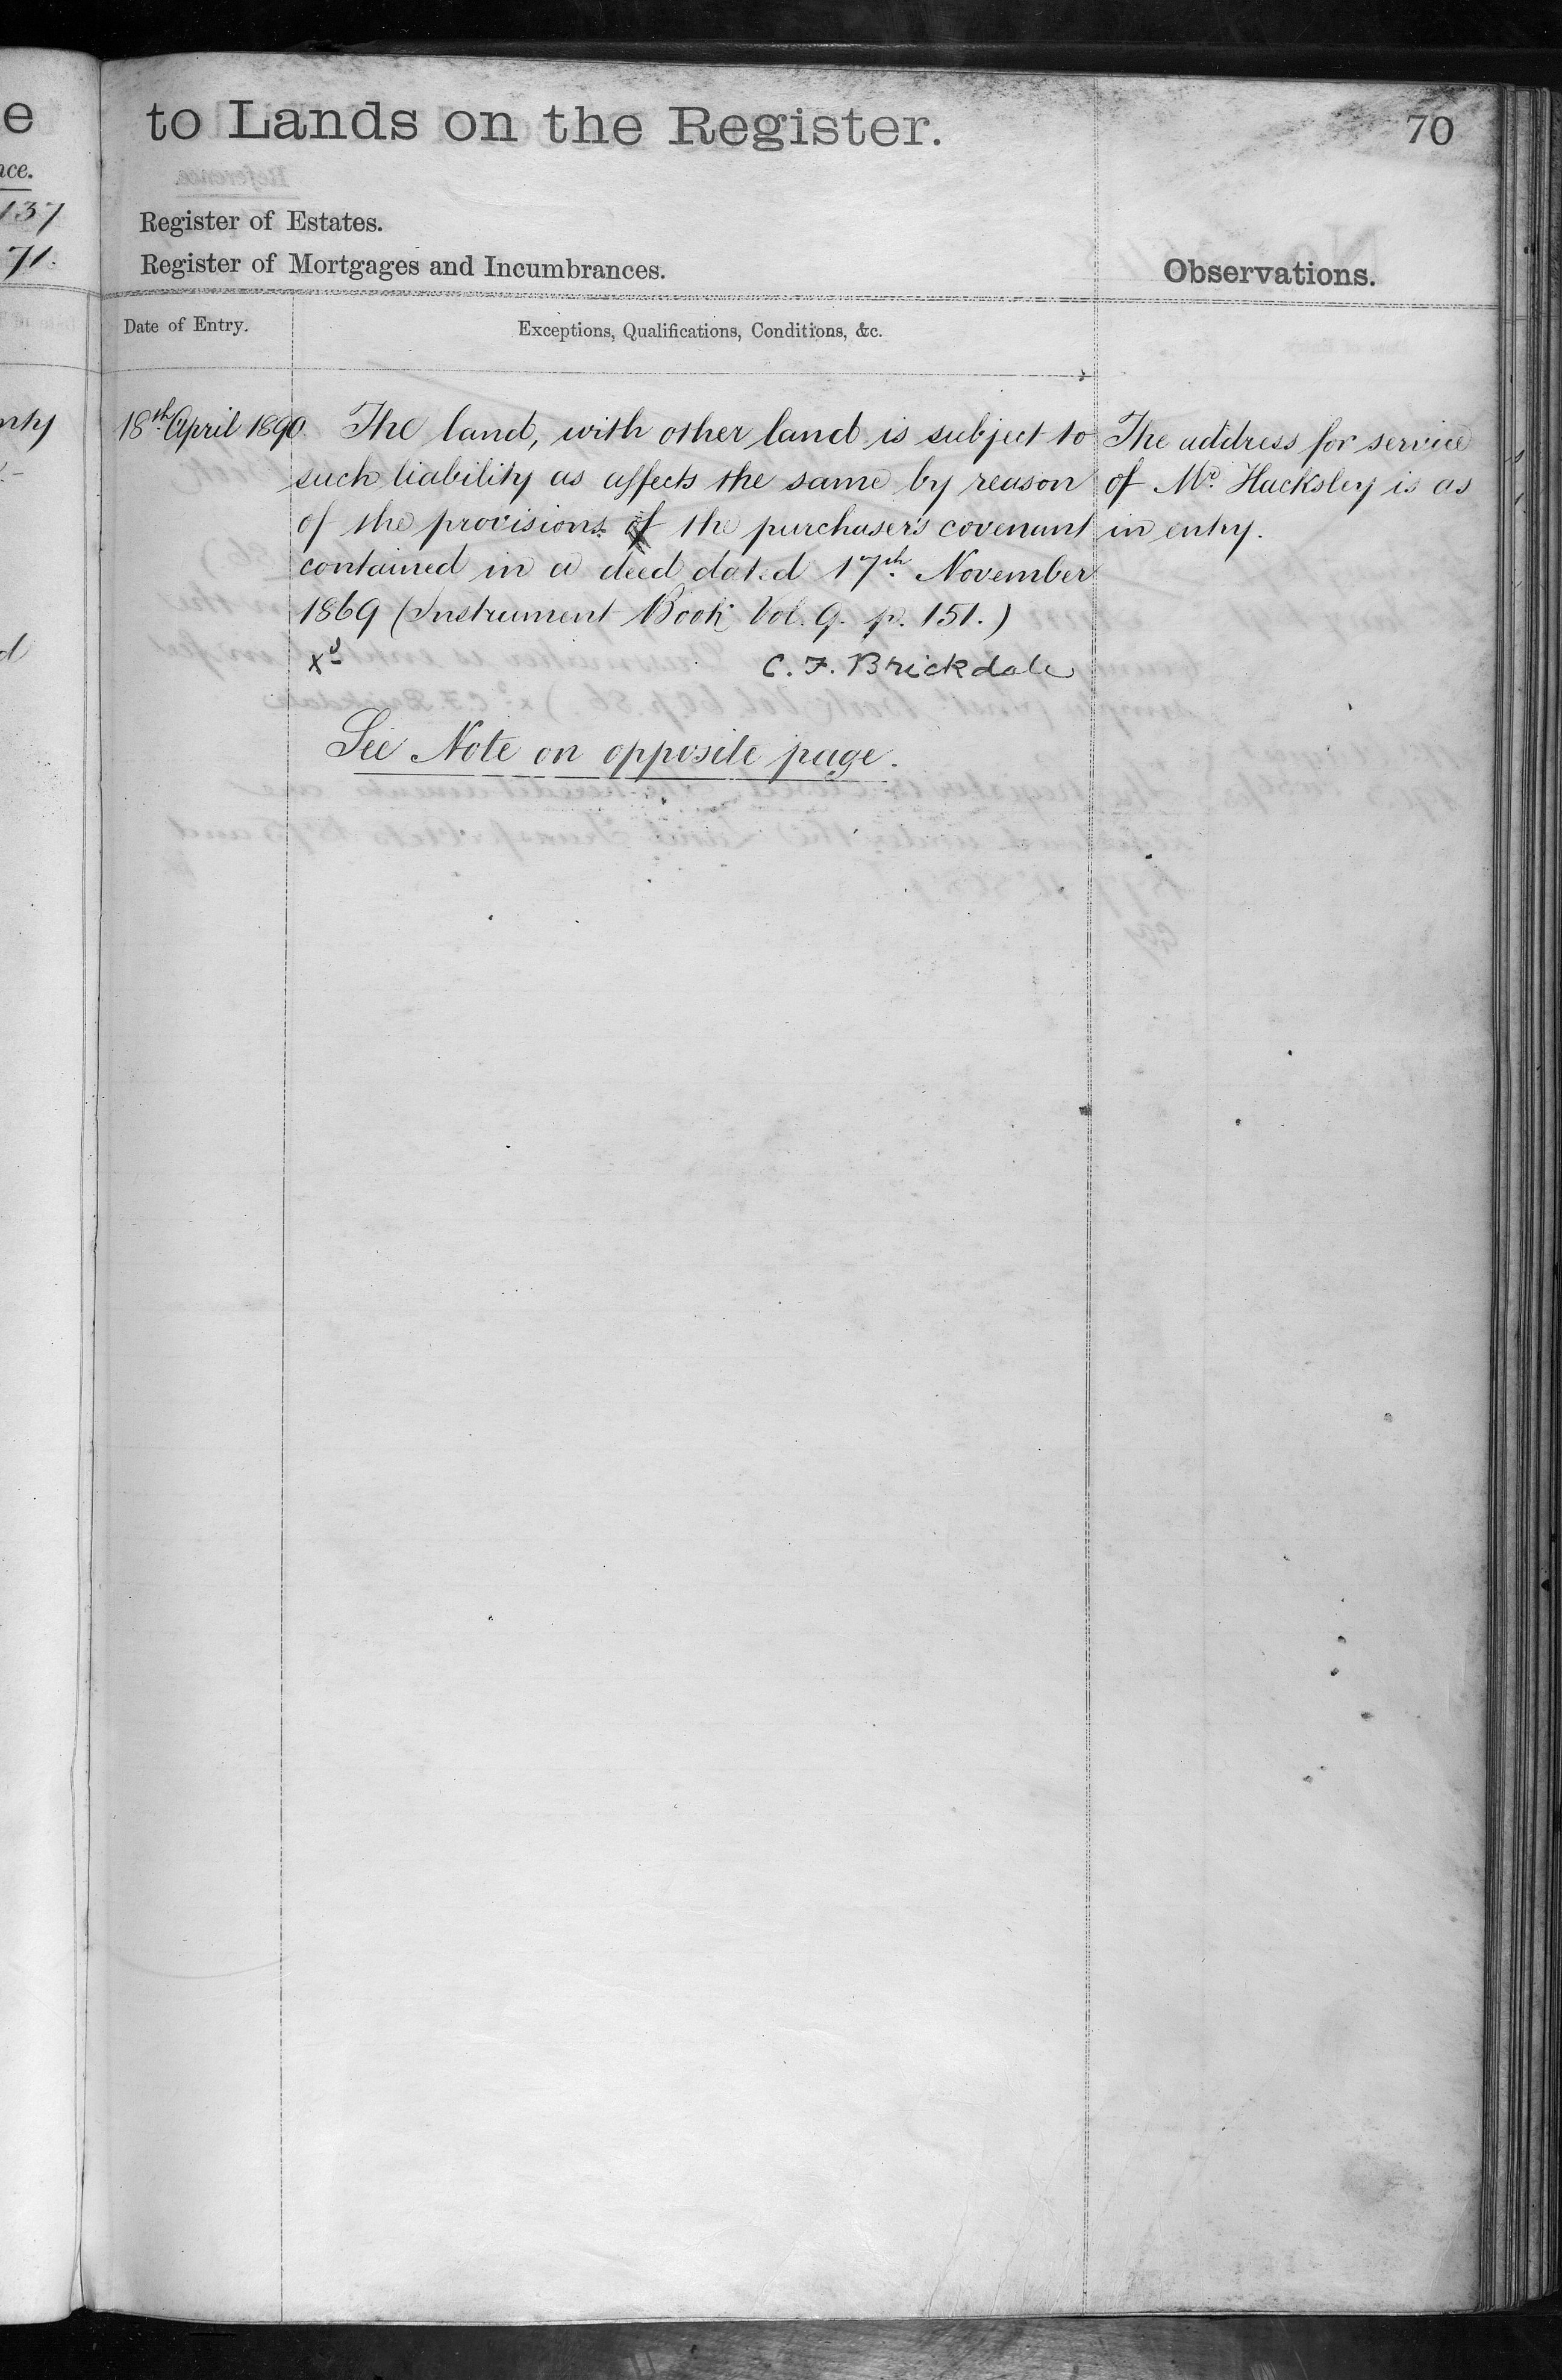 e
to Lands on the Register.
70
nce.
137
71.
Register of Estates.
Register of Mortgages and Incumbrances.
Observations.
Date of Entry.
Exceptions, Qualifications, Conditions, &c.
18th April 1890.
The land, with other land is subject to
such liability as affects the same by reason
of the provisions of the purchaser's covenant
contained in a deed dated 17th November
1869 (Instrument Book Vol. 9. p. 151.)
xd C. F. Brickdale
See Note on opposite page.
The address for service
of Mr. Hacksley is as
in entry.